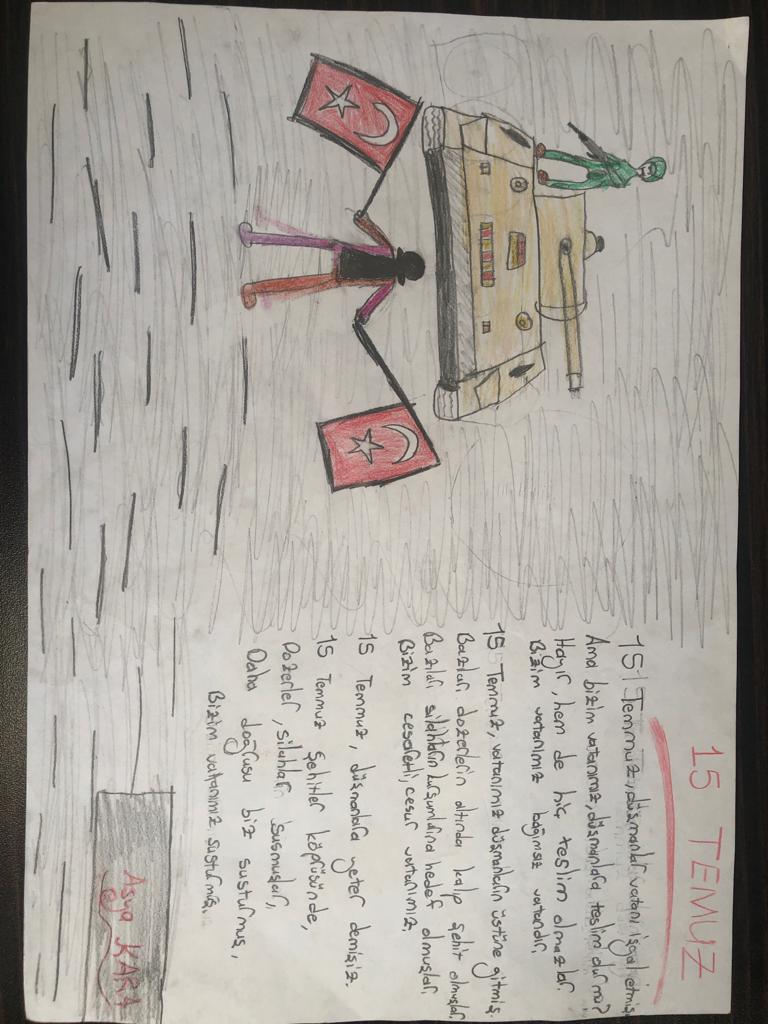 15 TEMUZ
15 Temmuz, düşmanlar vatanı işgal etmiş,
Ama bizim vatanımız, düşmanlara teslim olur mu?
Hayır, hem de hiç teslim olmazlar.
Bizim vatanımız bağımsız vatandır.
15 Temmuz, vatanımız düşmanların üstüne gitmiş.
Bazıları dozerlerin altında kalıp şehit olmuşlar.
Bazıları silahların kurşunlarına hedef olmuşlar.
Bizim cesaretli, cesur vatanımız,
15 Temmuz, düşmanlara yeter demişiz.
15 Temmuz şehitler köprüsünde,
Dozerler, silahlar susmuşlar,
Daha doğrusu biz susturmuş,
Bizim vatanımız susturmuş.
Asya KARA